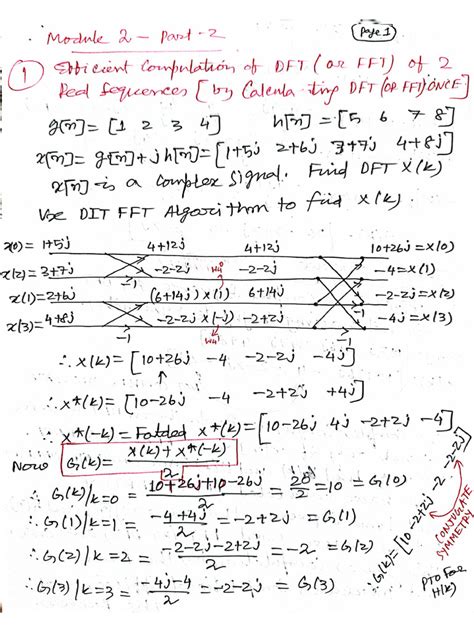 Page 1
Module 2 - Part - 2
1 Efficient Computation of DFT (or FFT) of 2
Real Sequences [by Calculating DFT (OR FFT) ONCE]
g[n] = [1 2 3 4] h[n] = [5 6 7 8]
x[n] = g[n] + j h[n] = [1+5j 2+6j 3+7j 4+8j]
x[n] is a complex signal. Find DFT X(k)
Use DIT FFT Algorithm to find X(k).
x(0) = 1+5j 4+12j 4+12j 10+26j = X(0)
x(2) = 3+7j -1 -2-2j W4^0 -2-2j -4 = X(1)
x(1) = 2+6j (6+14j) x (1) 6+14j -1 -2-2j = X(2)
x(3) = 4+8j -1 -2-2j x (-j) -2+2j -1 -4j = X(3)
W4^1
∴ X(k) = [10+26j -4 -2-2j -4j]
↑
∴ X*(k) = [10-26j -4 -2+2j +4j]
∴ X*(-k) = Folded X*(k) = [10-26j 4j -2+2j -4]
Now G(k) = X(k) + X*(-k) / 2
∴ G(k)/k=0 = 10+26j+10-26j / 2 = 20/2 = 10 = G(0)
∴ G(1)/k=1 = -4+4j / 2 = -2+2j = G(1)
∴ G(2)/k=2 = -2-2j-2+2j / 2 = -2 = G(2)
∴ G(3)/k=3 = -4j-4 / 2 = -2-2j = G(3)
∴ G(k) = [10 -2+2j -2 -2-2j]
CONJUGATE
SYMMETRY
PTO For
H(k)